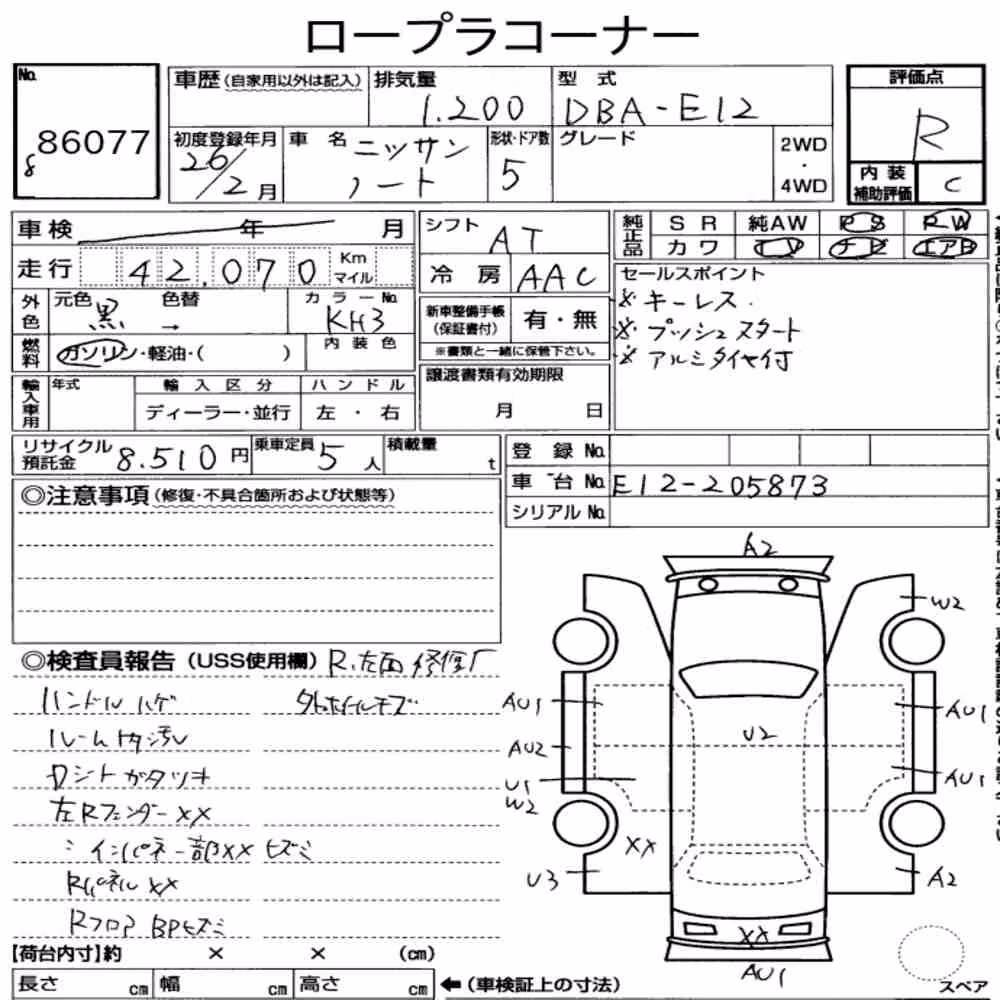 ロープラコーナー
No.
86077
8
車歴(自家用以外は記入)
排気量
1.200
型 式
DBA-E12
初度登録年月
26/2月
車 名
ニッサン
ノート
形状・ドア数
5
グレード
2WD
・
4WD
評価点
R
内装補助評価
C
車検 年 月
走行 42,070 Km マイル
外色 元色 黒 → 色替
カラーNo.
KH3
燃料 ガソリン・軽油・( )
内装色
輸入車用 年式
輸入区分
ディーラー・並行
ハンドル
左・右
シフト AT
冷房 AAC
新車整備手帳
(保証書付)
有・無
※書類と一緒に保管下さい。
譲渡書類有効期限
月 日
純正品 SR 純AW PS RW
カワ TV ナビ エアB
セールスポイント
※キーレス.
※プッシュスタート
※アルミタイヤ付
リサイクル
預託金 8.510円
乗車定員 5人
積載量 t
登録No.
車台No. E12-205873
シリアルNo.
◎注意事項(修復・不具合箇所および状態等)
◎検査員報告(USS使用欄) R.左面修復厂
ハンドルハゲ
外ホイールキズ
ルームトタ汚レ
ロントガタツキ
左RフェンダーXX
:インパネ一部XXヒズミ
RパネルXX
Rフロア BPヒズミ
【荷台内寸】約 × × (cm)
長さ cm 幅 cm 高さ cm ←(車検証上の寸法)
A2
W2
AU1
AU1
AU2
U2
U1
W2
AU1
XX
U3
A2
XX
AU1
スペア